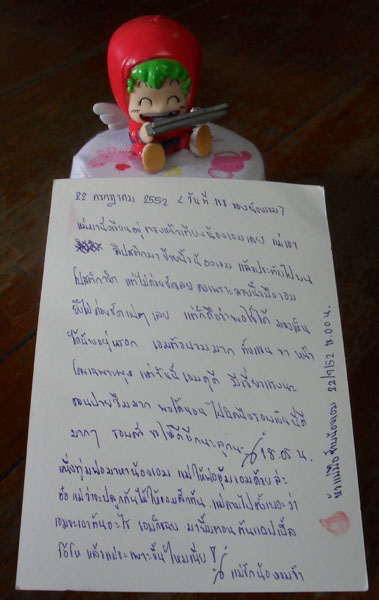 22 กรกฎาคม 2552 < วันที่ 118 ของน้องเอม >
แม่มานั่งเขียนอยู่ตรงหน้าเตียงน้องเอมเลย แม่เอา
ลิปสติกมาทานิ้วน้องเอม แล้วประทับไปบน
โปสการ์ด แต่ไม่ค่อยชัดเลย เพราะลายนิ้วมือเอม
ยังไม่ค่อยชัด เลย แต่ก็ถือว่าพอใช้ได้ มองเห็น
ได้บ้างอยู่หรอก เอมตัวบวมมาก ทั้งแขน ขา หน้า
โดยเฉพาะพุง แต่วันนี้เอมดูดี มีเรี่ยวแรงนะ
ตอนบ่ายซึมมาก พอได้นอน
มากๆ ขอให้ดีอีกนะลูกนะ 18.05 น.
เมื่อทุ่มพ่อมาหาน้องเอม แม่ให้พ่ออุ้มเอมด้วยล่ะ
อ้อ แม่ว่าจะปลูกต้นไม้ให้เอมสักต้น แม่ถามไปตั้งเยอะว่า
เอมจะเอาต้นอะไร เอมก็เฉย มายิ้มตอนต้นแอปเปิ้ล
โอ้โห แล้วแม่จะเพาะขึ้นไหมเนี่ย ! แม่รักน้องเอมจ้า
นิ้วแม่มือซ้ายน้องเอม 22/7/52 17.00 น.